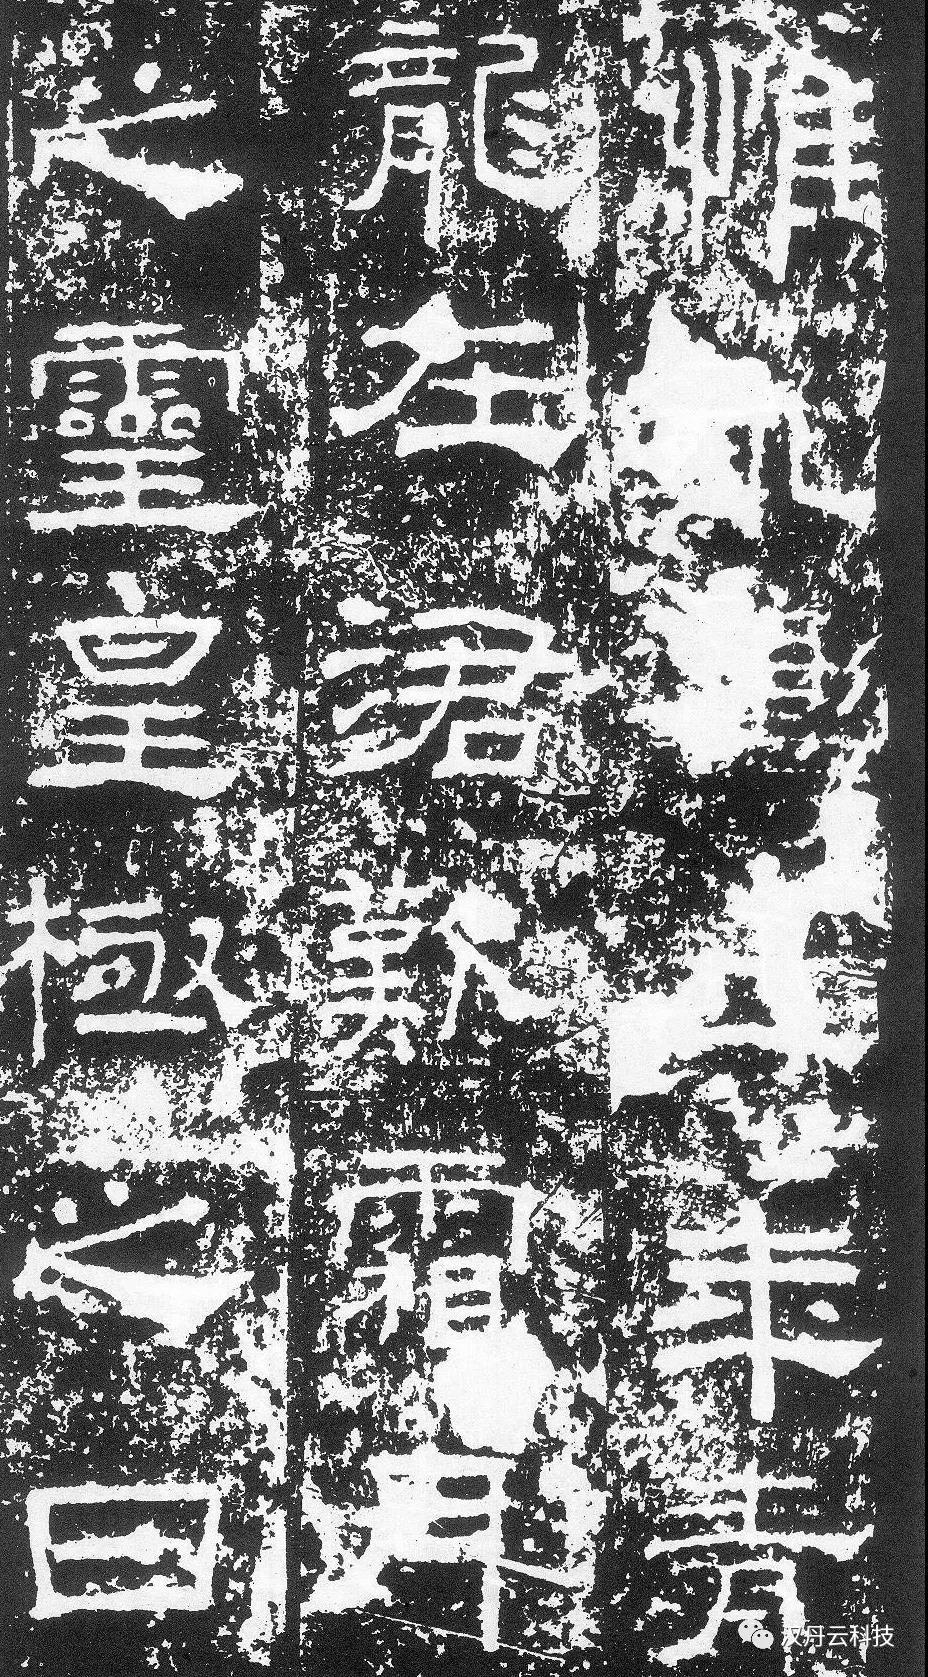 惟年青
龍在涒歎霜月
之靈皇極之日
汉丹云科技